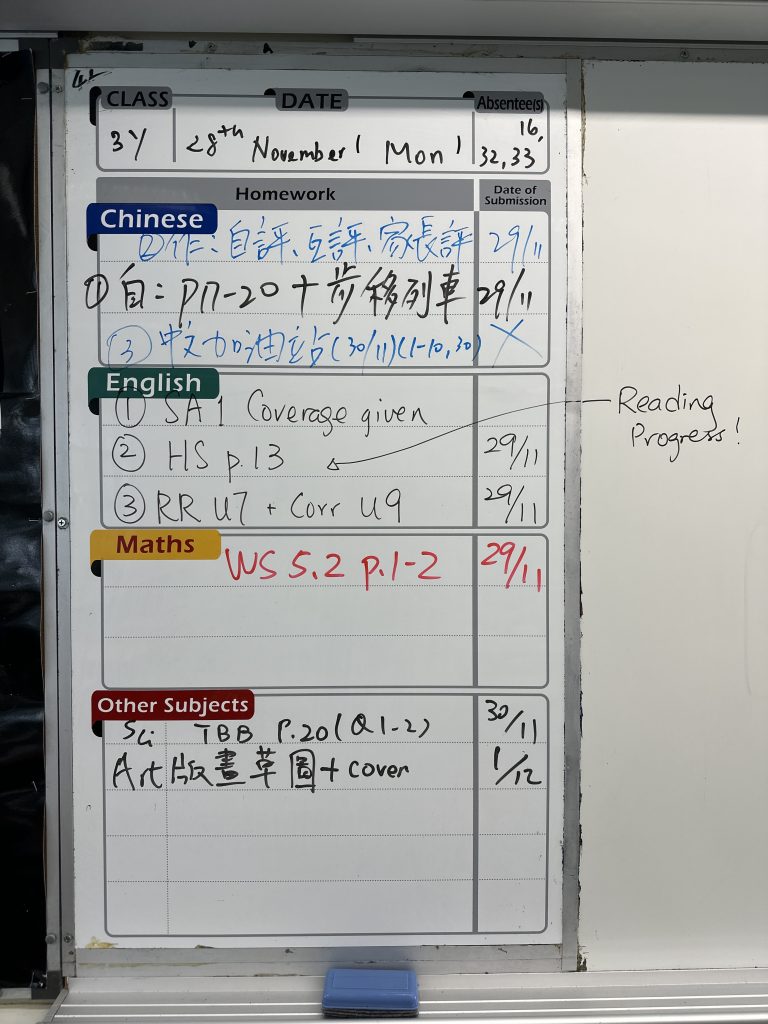 CLASS DATE Absentee(s)
3Y 28th November (Mon) 16, 32, 33
Homework Date of Submission
Chinese
②作：自評、互評、家長評 29/11
①自：P17-20 + 步移列車 29/11
③中文加油站(30/11)(1-10,30) X
English
① SA 1 Coverage given
② HS p.13 29/11
③ RR U7 + Corr U9 29/11
Reading
Progress!
Maths
WS 5.2 p.1-2 29/11
Other Subjects
Sci TBB P.20(Q1-2) 30/11
Art 版畫草圖 + cover 1/12